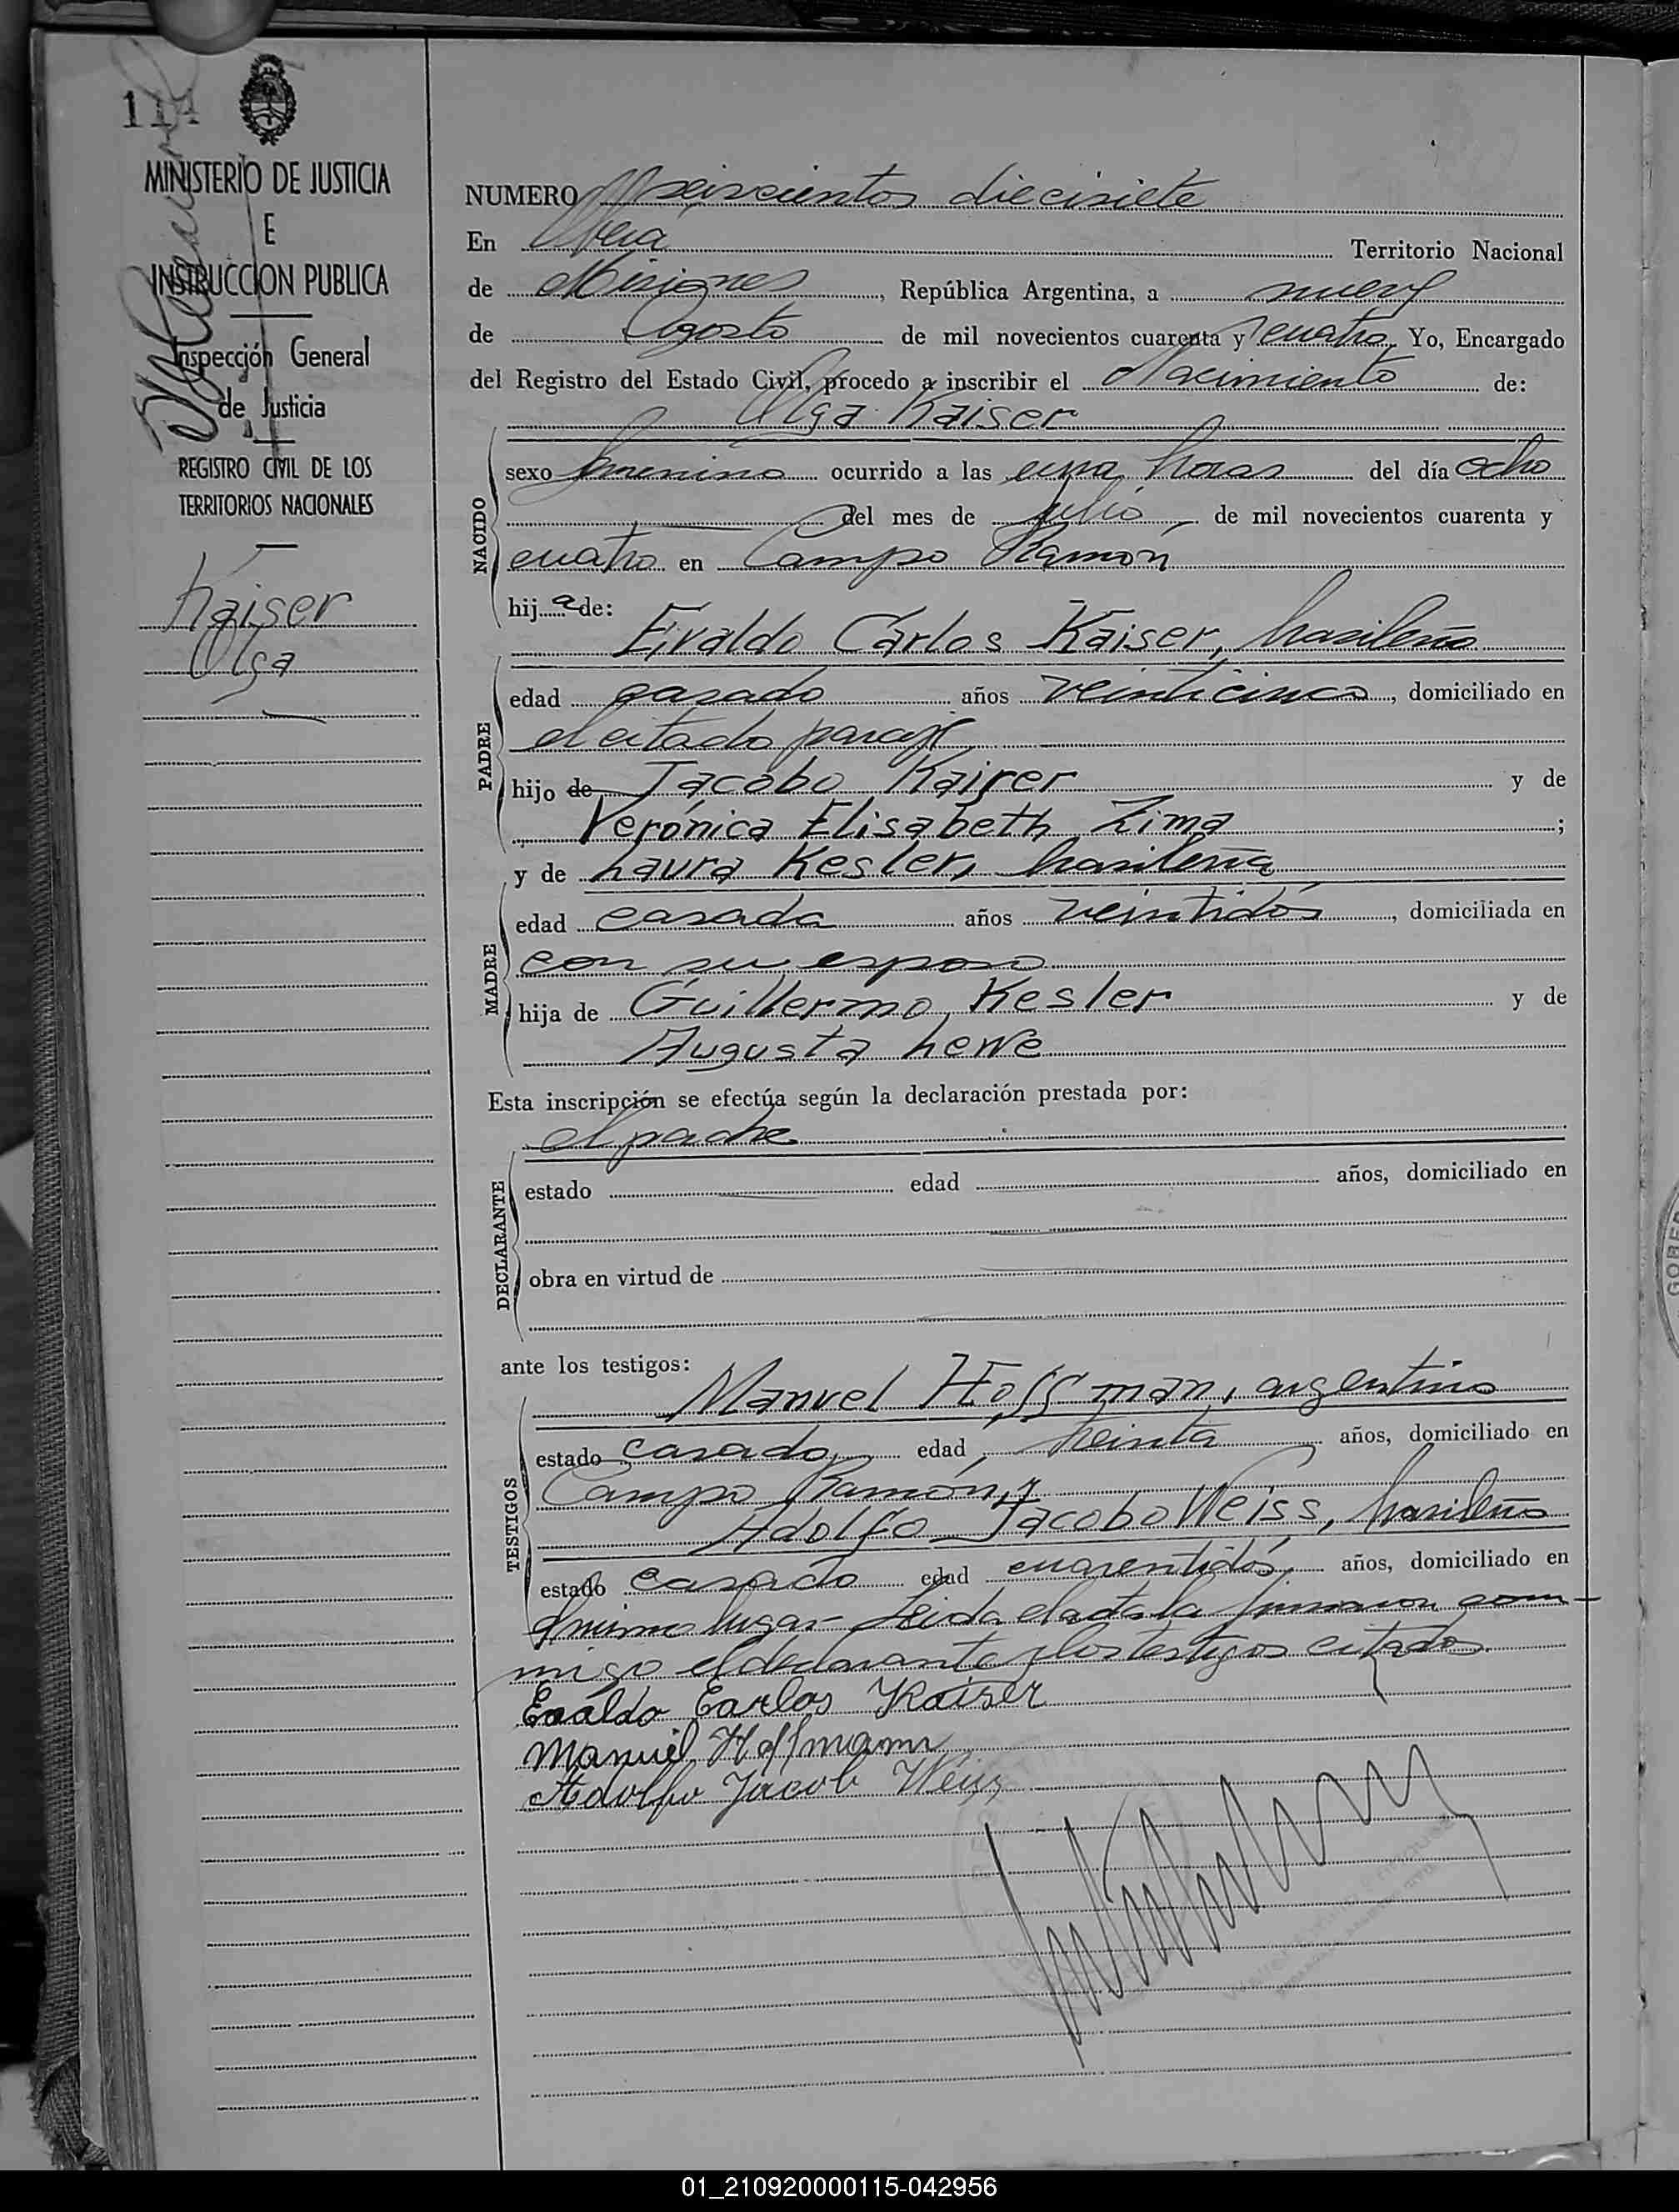 114
MINISTERIO DE JUSTICIA
E
INSTRUCCION PUBLICA
Inspección General
de Justicia
REGISTRO CIVIL DE LOS
TERRITORIOS NACIONALES
Kaiser
Olga
NUMERO seiscientos diecisiete
En Oberá Territorio Nacional
de Misiones, República Argentina, a nueve
de Agosto de mil novecientos cuarenta y cuatro Yo, Encargado
del Registro del Estado Civil, procedo a inscribir el Nacimiento de:
Olga Kaiser
NACIDO
sexo femenino ocurrido a las una horas del día ocho
del mes de julio de mil novecientos cuarenta y
cuatro en Campo Ramón
hija de:
Evaldo Carlos Kaiser, brasileño
PADRE
edad casado años veinticinco, domiciliado en
el citado paraje
hijo de Jacobo Kaiser y de
Verónica Elisabeth Zima;
y de Laura Kesler, brasileña
MADRE
edad casada años veintidós, domiciliada en
con su esposo
hija de Guillermo Kesler y de
Augusta
Esta inscripción se efectúa según la declaración prestada por:
el padre
DECLARANTE
estado edad años, domiciliado en
obra en virtud de
ante los testigos:
Manuel Hoffman, argentino
TESTIGOS
estado casado, edad treinta años, domiciliado en
Campo Ramón, y
Adolfo Jacobo Weiss, brasileño
estado casado edad cuarentidós, años, domiciliado en
el mismo lugar - Leida el acta la firmaron con-
migo el declarante y los testigos citados.
Evaldo Carlos Kaiser
Manuel Hoffmann
Adolfo Jacob Weiss
01_210920000115-042956